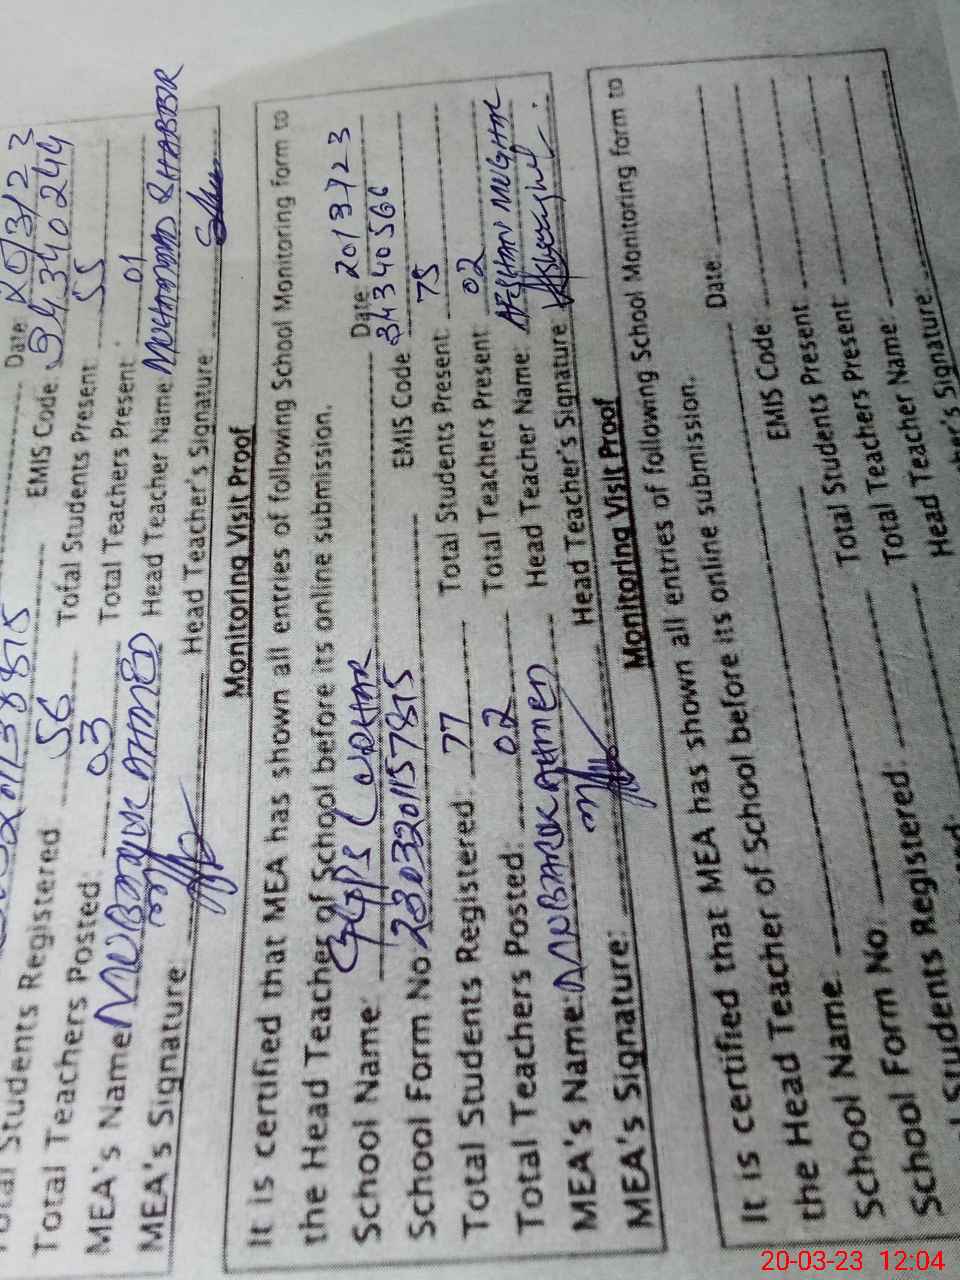 Date: 20/3/23
EMIS Code: 34340244
Total Students Registered: 56 Total Students Present: 55
Total Teachers Posted: 03 Total Teachers Present: 01
MEA's Name: MUBARAK AHMED Head Teacher Name: MUHAMMAD SHABBIR
MEA's Signature: Head Teacher's Signature:
Monitoring Visit Proof
It is certified that MEA has shown all entries of following School Monitoring form to
the Head Teacher of School before its online submission.
School Name: GGPS Date: 20/3/23
School Form No. EMIS Code: 34340566
Total Students Registered: 77 Total Students Present: 75
Total Teachers Posted: 02 Total Teachers Present: 02
MEA's Name: MUBARAK AHMED Head Teacher Name: AFSHAN MUGHAL
MEA's Signature: Head Teacher's Signature
Monitoring Visit Proof
It is certified that MEA has shown all entries of following School Monitoring form to
the Head Teacher of School before its online submission.
School Name: Date:
School Form No. EMIS Code:
Students Registered: Total Students Present:
Total Teachers Present
Head Teacher Name:
Head Teacher's Signature:
20-03-23 12:04